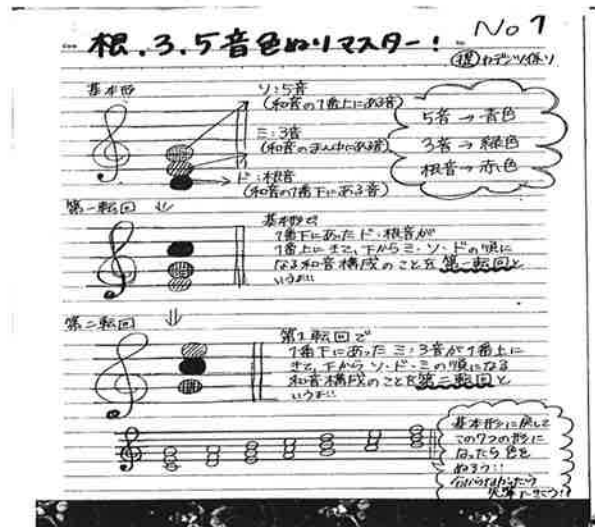 No 1
根.3.5音色ぬりマスター!
基本形
ソ:5音
(和音の1番上にある音)
ミ:3音
(和音のまん中にある音)
ド:根音
(和音の1番下にある音)
5音→青色
3音→緑色
根音→赤色
第一転回
基本形で
1番下にあったド・根音が
1番上にきて、下からミ・ソ・ドの順に
なる和音構成のことを第一転回と
いうよ!!
第二転回
第1転回で
1番下にあったミ・3音が1番上に
きて、下からソ・ド・ミの順になる
和音構成のことを第二転回と
いうよ!!
基本形に戻して
この7つの形に
なったら色を
ぬろう!!
分からなかったら